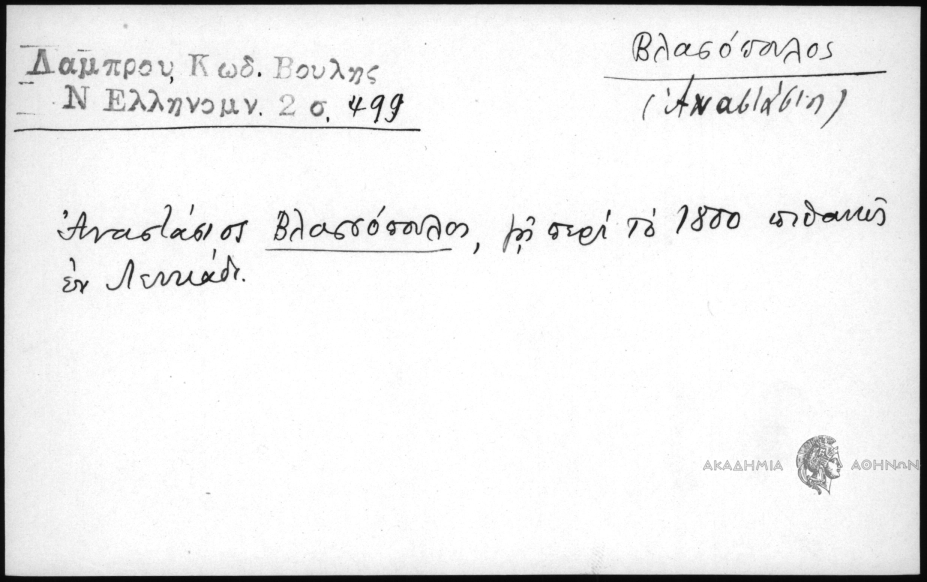 Λαμπρου, Κωδ. Βουλης
Ν Ελληνομν. 2 σ. 499
Βλασόπουλος
(Ἀναστάσιος)
Ἀναστάσιος Βλασσόπουλος, ζῇ περὶ τὸ 1800 πιθανῶς
ἐν Λευκάδι.
ΑΚΑΔΗΜΙΑ ΑΘΗΝΩΝ